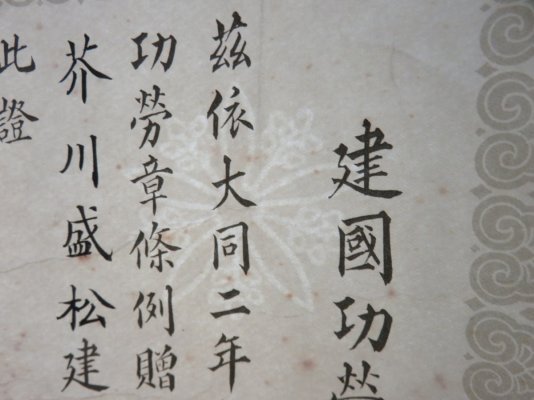 建國功勞
茲依大同二年
功勞章條例贈
芥川盛松建
此證